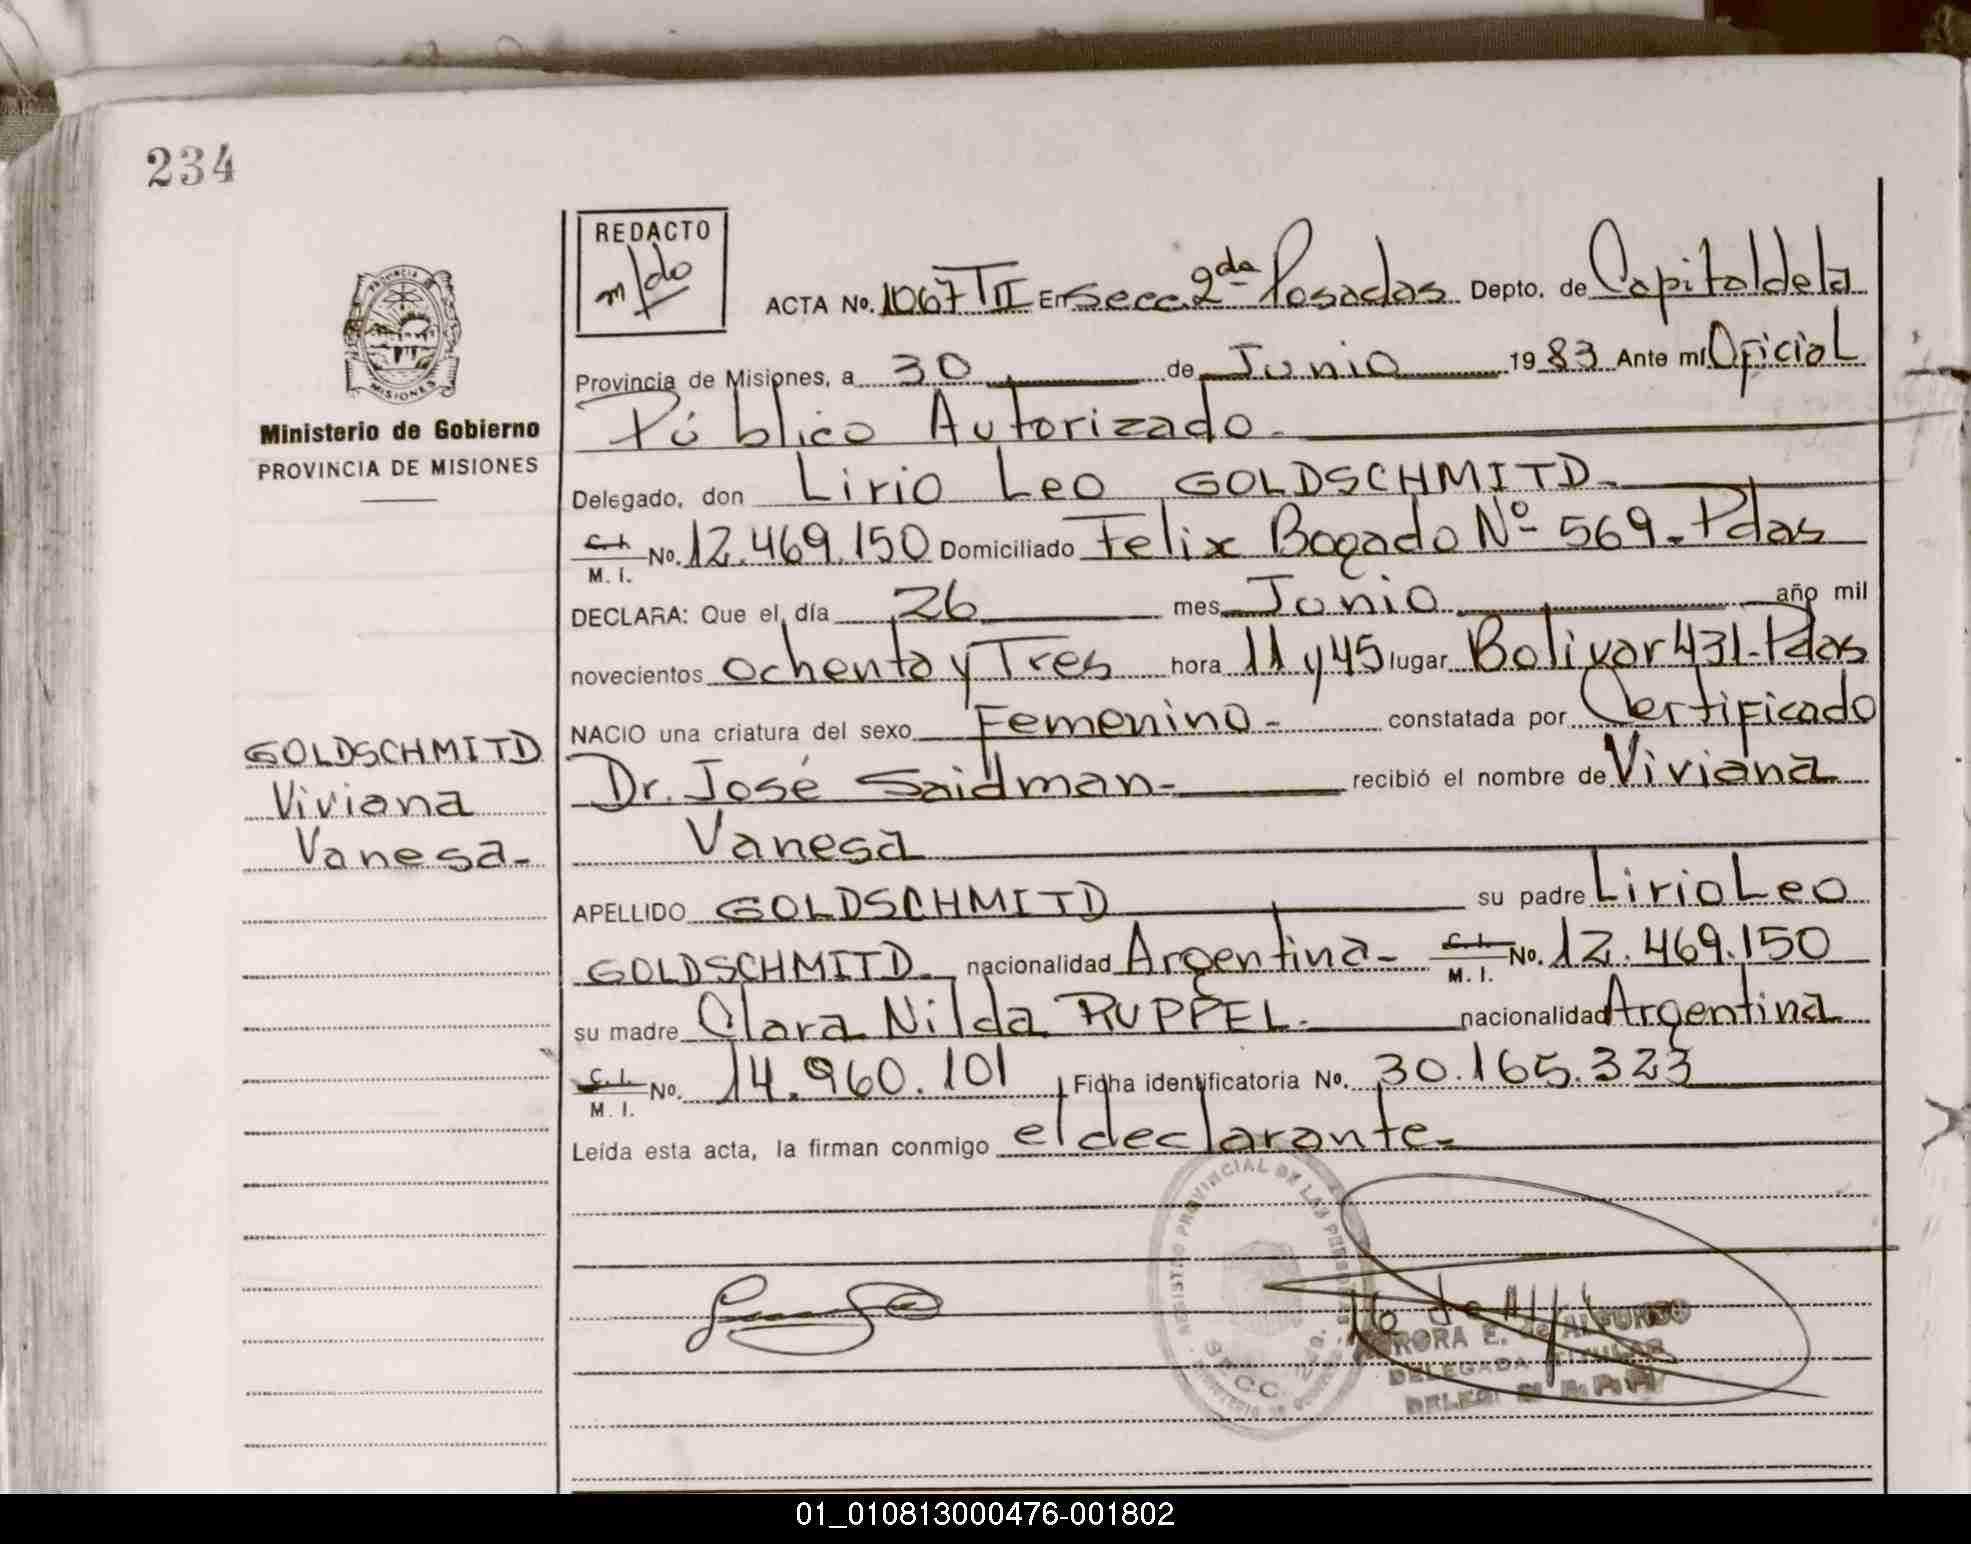 234
REDACTO
m/do
ACTA No. 1067 TII En Secc. 2da Posadas Depto. de Capital de la
Provincia de Misiones, a 30 de Junio 1983 Ante mí Oficial
Público Autorizado.
PROVINCIA
MISIONES
Ministerio de Gobierno
PROVINCIA DE MISIONES
Delegado, don Lirio Leo GOLDSCHMITD.
C.I. M.I. No. 12.469.150 Domiciliado Felix Bogado Nº 569. Pdas
DECLARA: Que el día 26 mes Junio año mil
novecientos ochenta y Tres hora 11 y 45 lugar Bolivar 431-Pdas
NACIO una criatura del sexo Femenino- constatada por Certificado
GOLDSCHMITD
Viviana
Vanesa-
Dr. José Saidman- recibió el nombre de Viviana
Vanesa
APELLIDO GOLDSCHMITD su padre Lirio Leo
GOLDSCHMITD nacionalidad Argentina- C.I. M.I. No. 12.469.150
su madre Clara Nilda RUPPEL- nacionalidad Argentina
C.I. M.I. No. 14.960.101 Ficha identificatoria No. 30.165.323
Leída esta acta, la firman conmigo el declarante-
REGISTRO PROVINCIAL DE LAS PERSONAS
SECC.
AURORA E. de ALFONSO
DELEGADA TITULAR
01_010813000476-001802